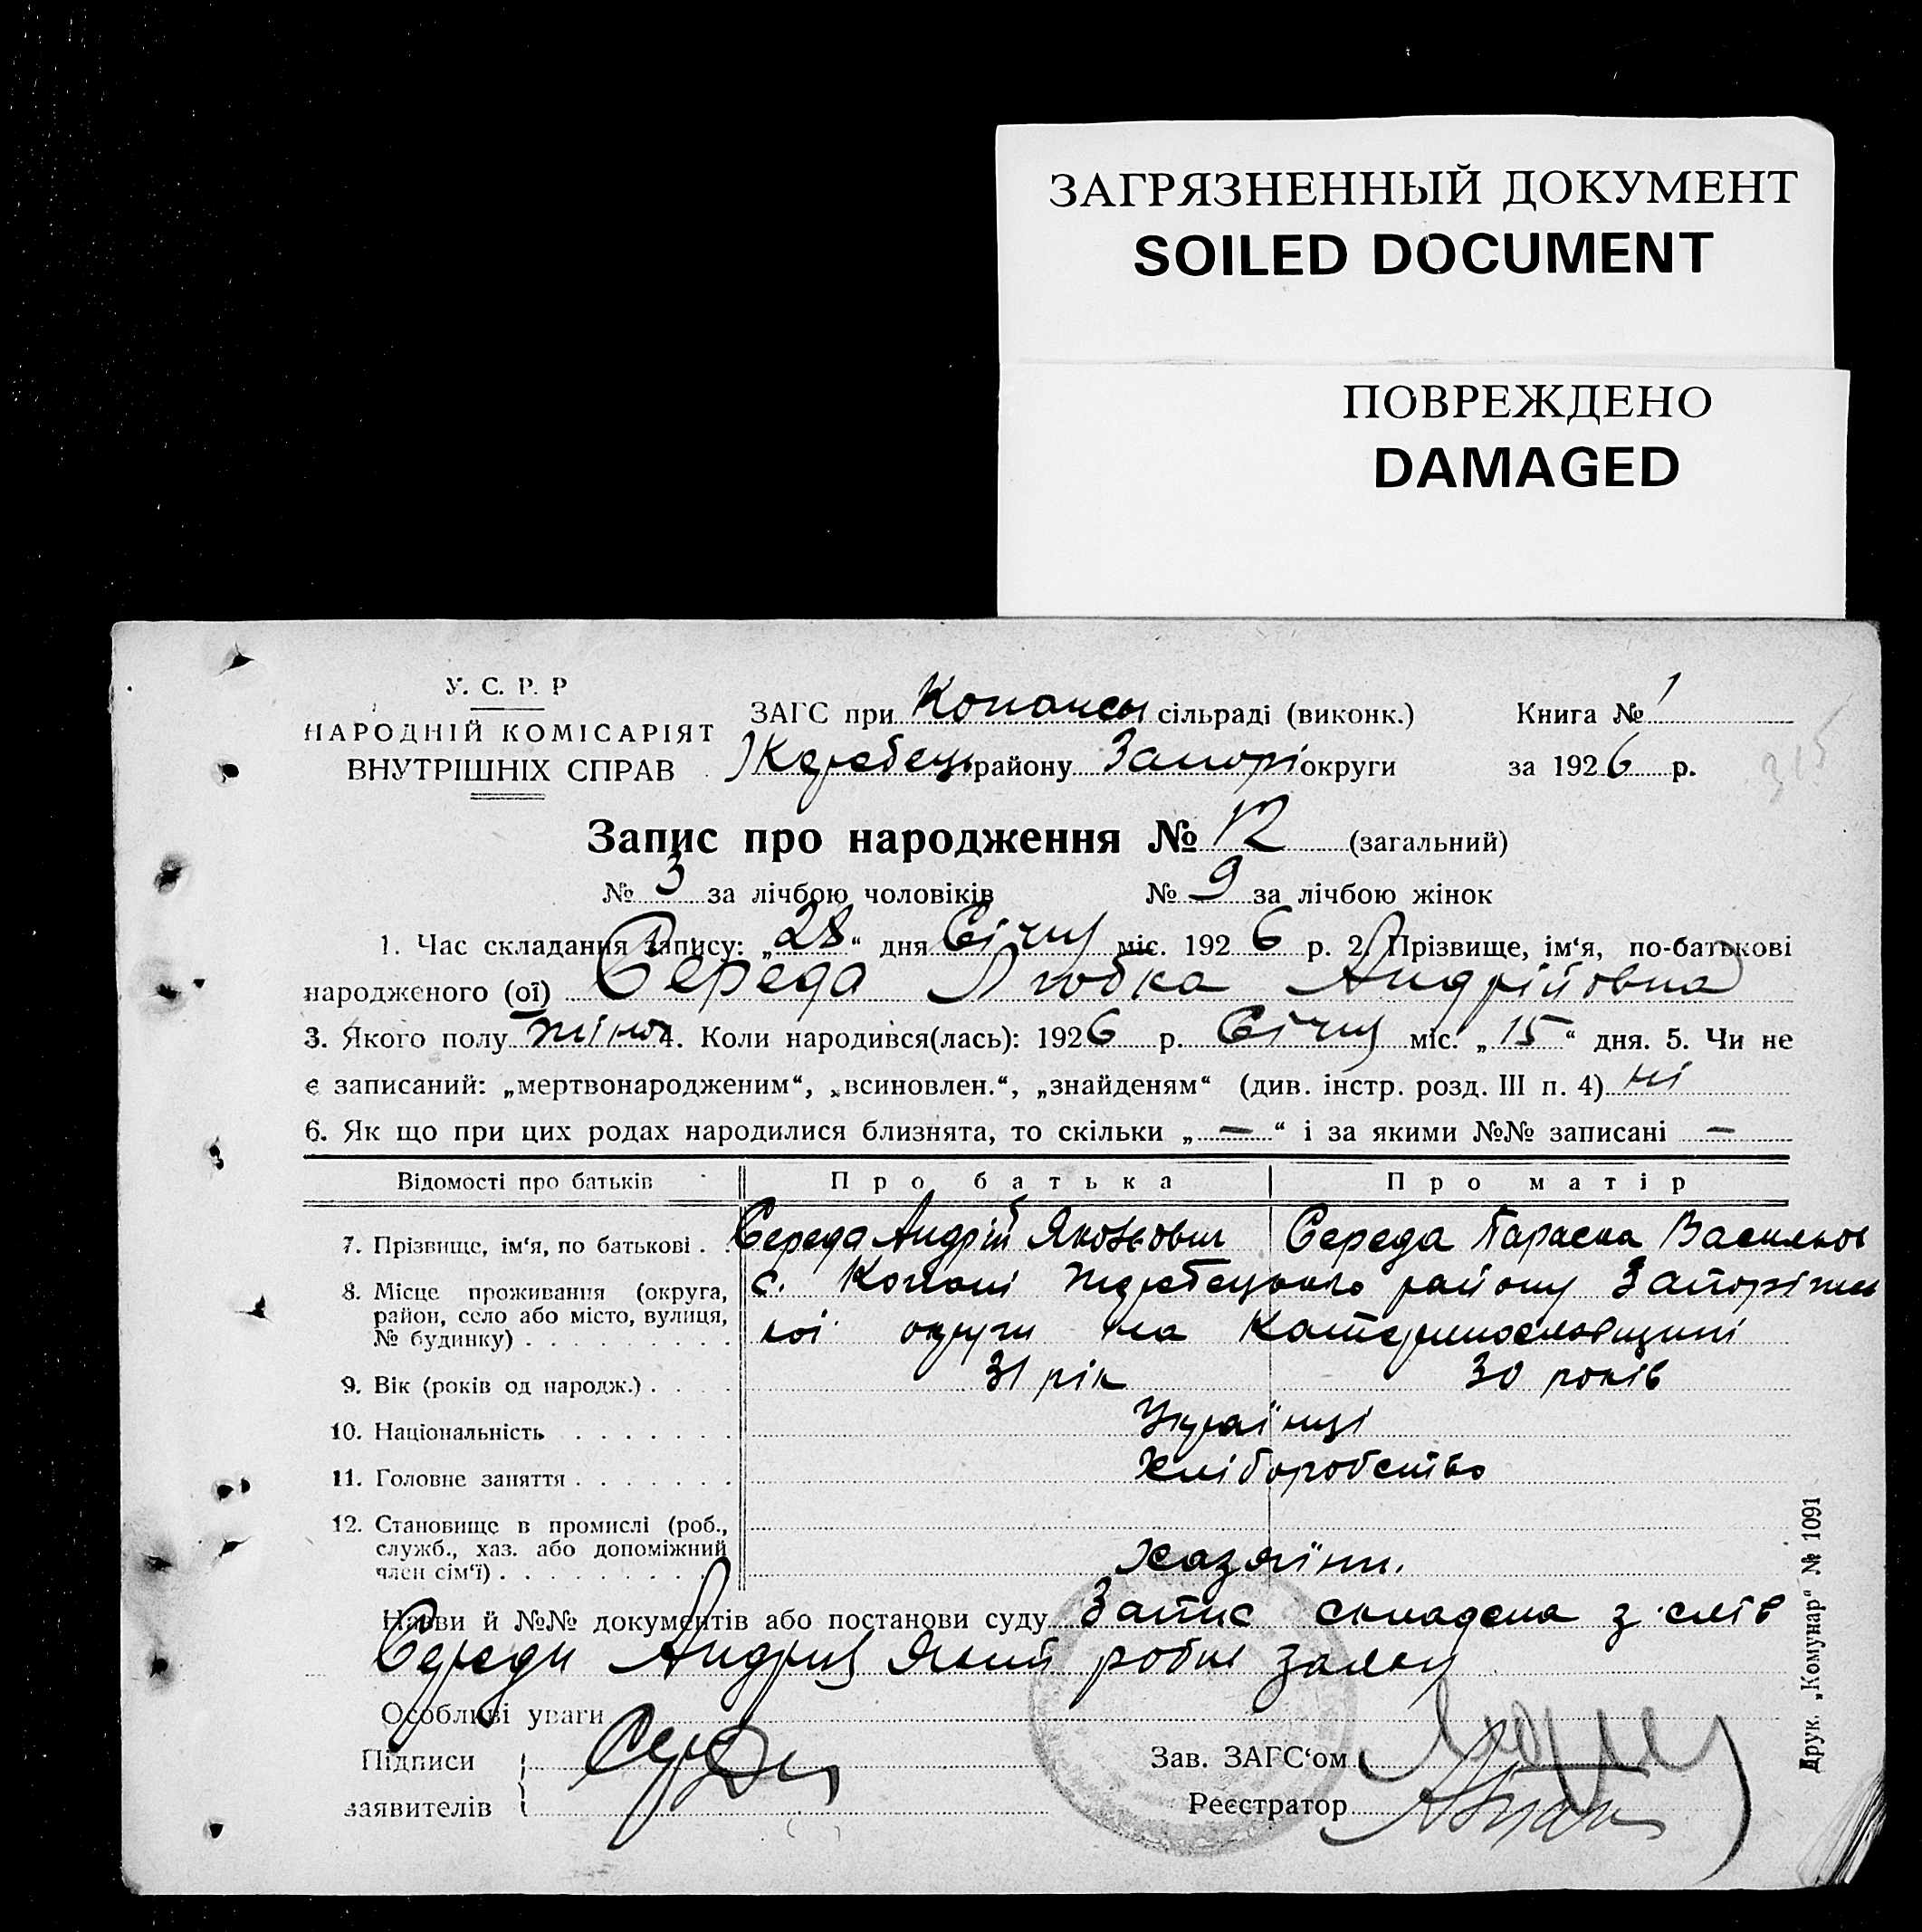 ЗАГРЯЗНЕННЫЙ ДОКУМЕНТ
SOILED DOCUMENT
ПОВРЕЖДЕНО
DAMAGED
У. С. Р. Р
НАРОДНІЙ КОМІСАРІЯТ
ВНУТРІШНІХ СПРАВ
ЗАГС при Копансы сільраді (виконк.)
Жеребець району Запорі округи
Книга № 1
за 1926 р.
315
Запис про народження № 12 (загальний)
№ 3 за лічбою чоловіків № 9 за лічбою жінок
1. Час складання запису: „28“ дня Січня міс. 1926 р. 2. Прізвище, ім‘я, по-батькові
народженого (ої) Середа Любка Андрійовна
3. Якого полу жіноч 4. Коли народився(лась): 1926 р. Січня міс. „15“ дня. 5. Чи не
є записаний: „мертвонародженим“, „всиновлен.“, „знайденям“ (див. інстр. розд. III п. 4) ні
6. Як що при цих родах народилися близнята, то скільки „—“ і за якими №№ записані —
Відомості про батьків Про батька Про матір
7. Прізвище, ім‘я, по батькові . . Середа Андрій Яковович Середа Параска Васильов
8. Місце проживання (округа, район, село або місто, вулиця, № будинку) . . . . . . . . . с. Копані Жеребецького району Запоріжсь
кої округи на Катеринославщині
9. Вік (років од народж.) . . . . 31 рік 30 років
10. Національність . . . . . . . Українці
11. Головне заняття . . . . . . . Хліборобство
12. Становище в промислі (роб., служб., хаз. або допоміжний член сім‘ї) . . . . . . . . . Хазяїни.
Назви й №№ документів або постанови суду Запис складена з слів
Середи Андрія Який робив заяву
Особливі уваги
Підписи
заявителів
Зав. ЗАГС‘ом
Реєстратор
Друк. „Комунар“ № 1091